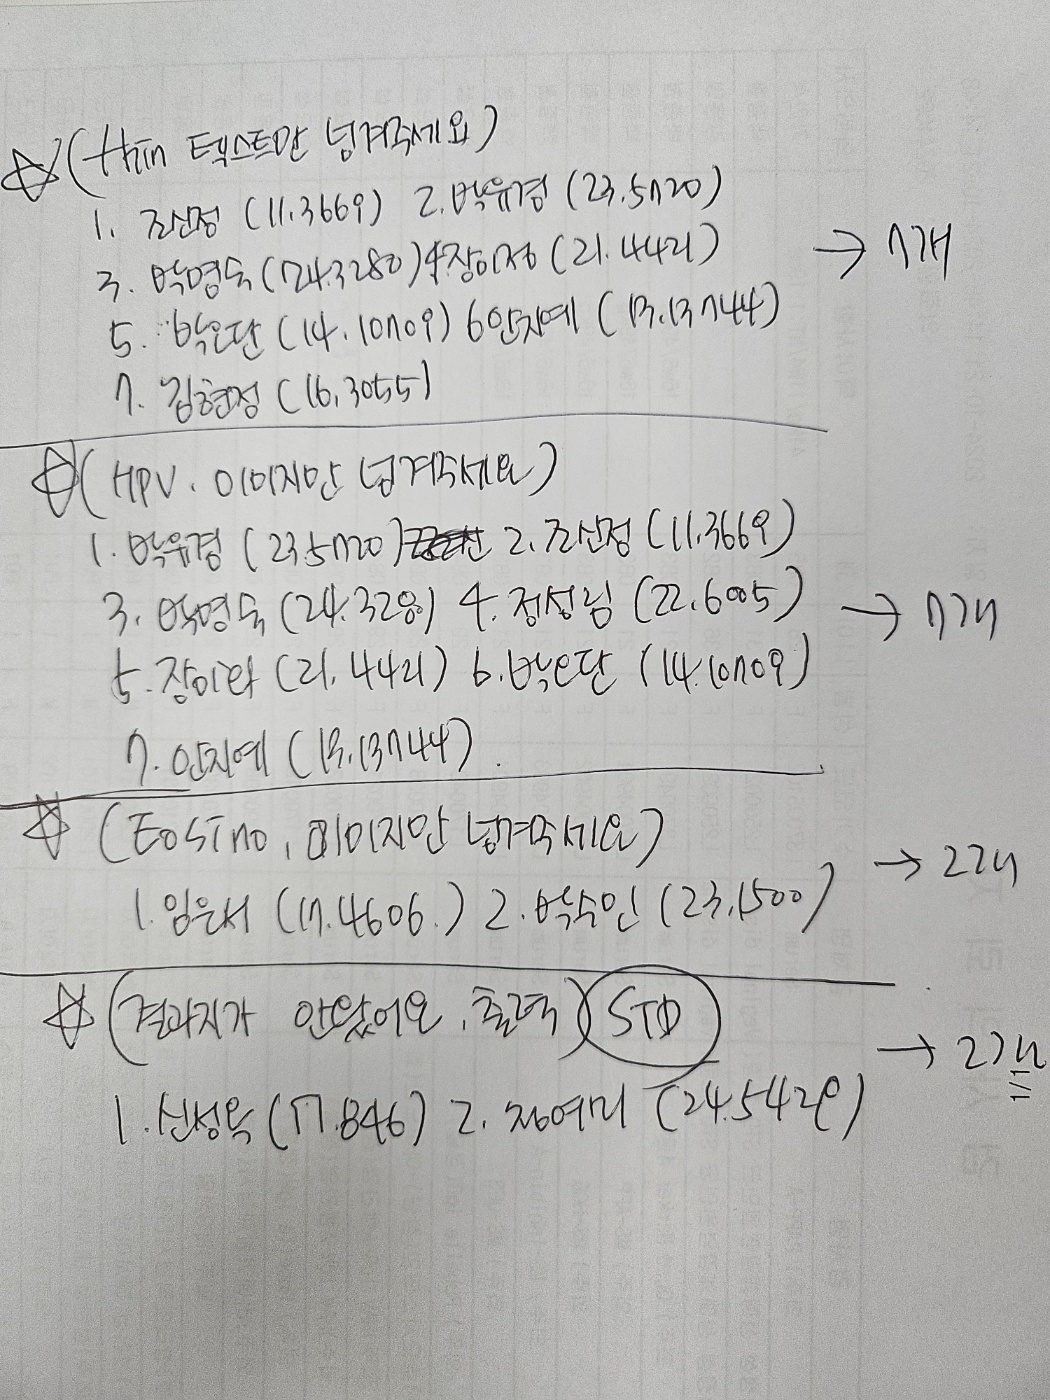 ☆(thin 텍스트만 넘겨주세요)
1. 조산정 (11.3669) 2. 박유경 (23.5720)
3. 박명숙 (24.3280) 4. (21.4421)
5. 박은단 (14.10709) 6 안지예 (13.13744)
7. 김현정 (16.3055)
→ 7개
☆(HPV. 이미지만 넘겨주세요)
1. 박유경 (23.5720) 2. 조산정 (11.3669)
3. 박명숙 (24.3280) 4. 정성님 (22.6005)
5. (21.4421) 6. 박은단 (14.10709)
7. 안지예 (13.13744).
→ 7개
☆(EoSino, 이미지만 넘겨주세요)
1. 임은서 (17.4606.) 2. 박수인 (23.1500)
→ 2개
☆(결과지가 안왔어요. 출력) STD
1. 신성옥 (17.846) 2. (24.5429)
→ 2개
1/1